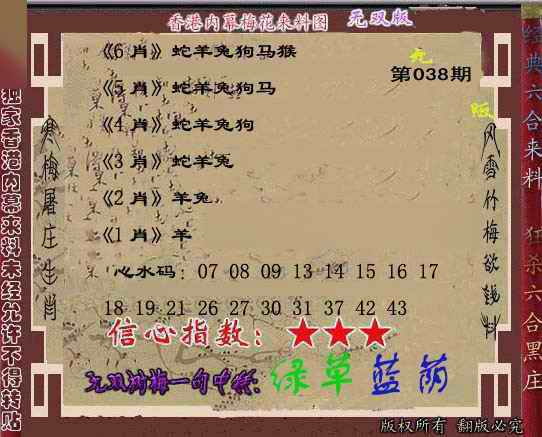 香港内幕梅花来料图 无双版
《6 肖》蛇羊兔狗马猴
无
第038期
《5 肖》蛇羊兔狗马
版
《4 肖》蛇羊兔狗
《3 肖》蛇羊兔
《2 肖》羊兔
《1 肖》羊
心水码: 07 08 09 13 14 15 16 17
18 19 21 26 27 30 31 37 42 43
信心指数: ★★★
一句中特: 绿草蓝荫
独家香港内幕来料未经允许不得转贴
寒梅屠庄生肖
风雪竹梅欲钱料
经典六合来料
狂杀六合黑庄
版权所有 翻版必究